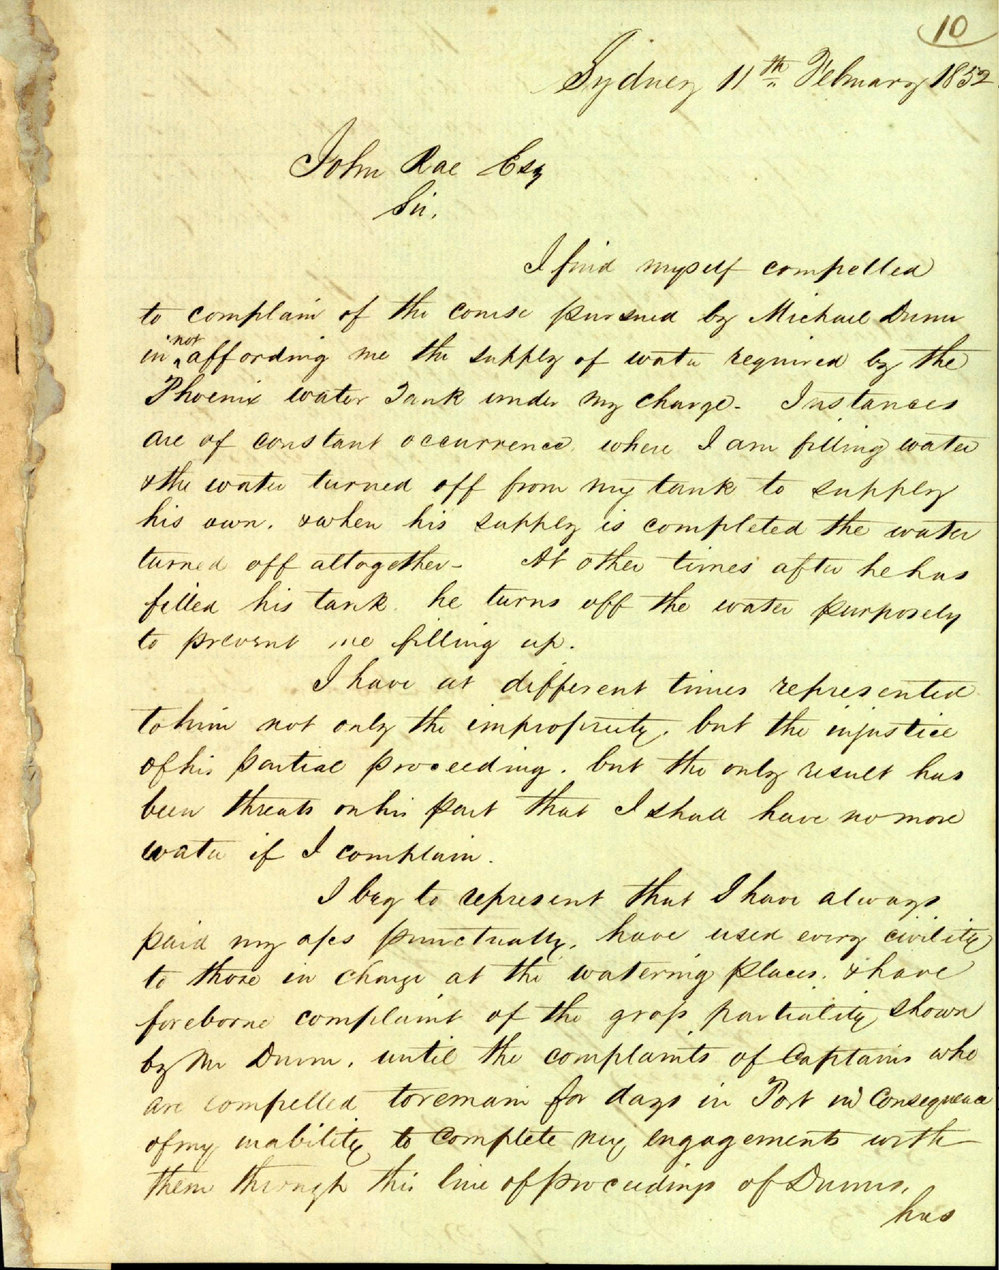 10
Sydney 11th February 1852
John Rae Esq
Sir,
I find myself compelled
to complain of the course pursued by Michael Dunn
in not affording me the supply of water required by the
Phoenix water Tank under my charge. Instances
are of constant occurrence where I am filling water
& the water turned off from my tank to supply
his own, & when his supply is completed the water
turned off altogether - At other times after he has
filled his tank he turns off the water purposely
to prevent me filling up.
I have at different times represented
to him not only the impropriety, but the injustice
of his partial proceeding, but the only result has
been threats on his part that I shall have no more
water if I complain.
I beg to represent that I have always
paid my a/cs punctually, have used every civility
to those in charge at the watering places, & have
foreborne complaint of the gross partiality shown
by Mr Dunn, until the complaints of Captains who
are compelled to remain for days in Port in consequence
of my inability to complete my engagements with
them through this line of proceedings of Dunns,
has